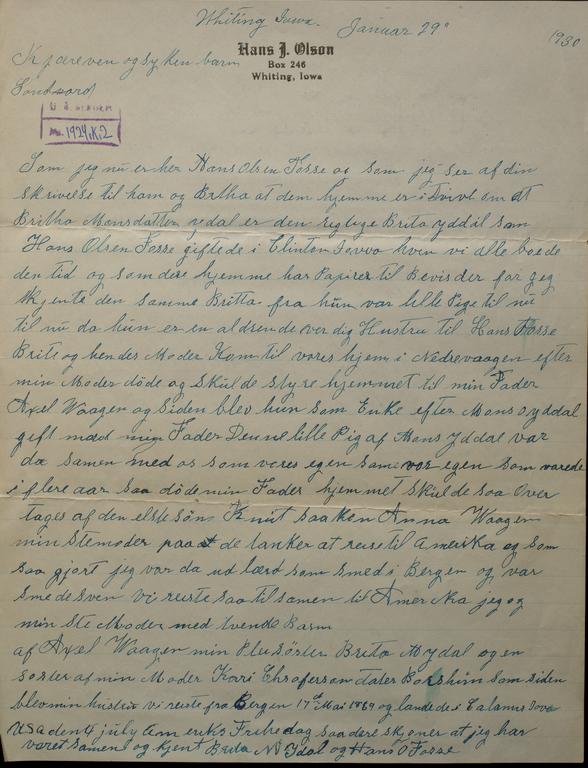 Whiting Iowa. Januar 29° 1930
Hans J. Olson
Box 246
Whiting, Iowa
Kjære ven og sysken barn
No. 1924, K. 2
Som jeg nu er her Hans Olsen Fosse og som jeg ser af din
skrivelse til ham og Britha at dem hjemme er i Tvivl om at
Britha Monsdatter ydal er den rigtige Brita yddal som
Hans Olsen Fosse giftede i Clinton Iowa hvor vi alle boede
den tid og som dere hjemme har Papirer til Bevis der for jeg
kjente den samme Britta fra hun var lille Pige til nu
til nu da hun er en aldrende verdig Hustru til Hans Fosse
Brite og hendes Moder Kom til vores hjem i Nedrevaagen efter
min Moder döde og skulde styre hjemmet til min Fader
Axel Waagen og Siden blev hun som Enke efter Mons yddal
gift med min Fader Denne lille Pig af Mons yddal var
da samen med os som vores egen som varede
i flere aar saa döde min Fader hjemmet skulde saa over
tages af den elste söns Knut saa kom Anna Waagen
min Stemoder paa de tanker at reise til Amerika og som
saa gjort jeg var da ud lært som smed i Bergen og var
smedesven vi reiste saa til samen til Amerika jeg og
min Ste Moder med tvende Barn
af Axel Waagen min Plusöster Brita Mydal og en
söster af min Moder Kari Chroferson dater som siden
blev min hustru vi reiste fra Bergen 17de Mai 1869 og landede i Calamus Iova
USA den 4 july Am erks Frihedag saa dere skjöner at jeg har
veret samen og kjent Brita M Ydal og Hans O Fosse